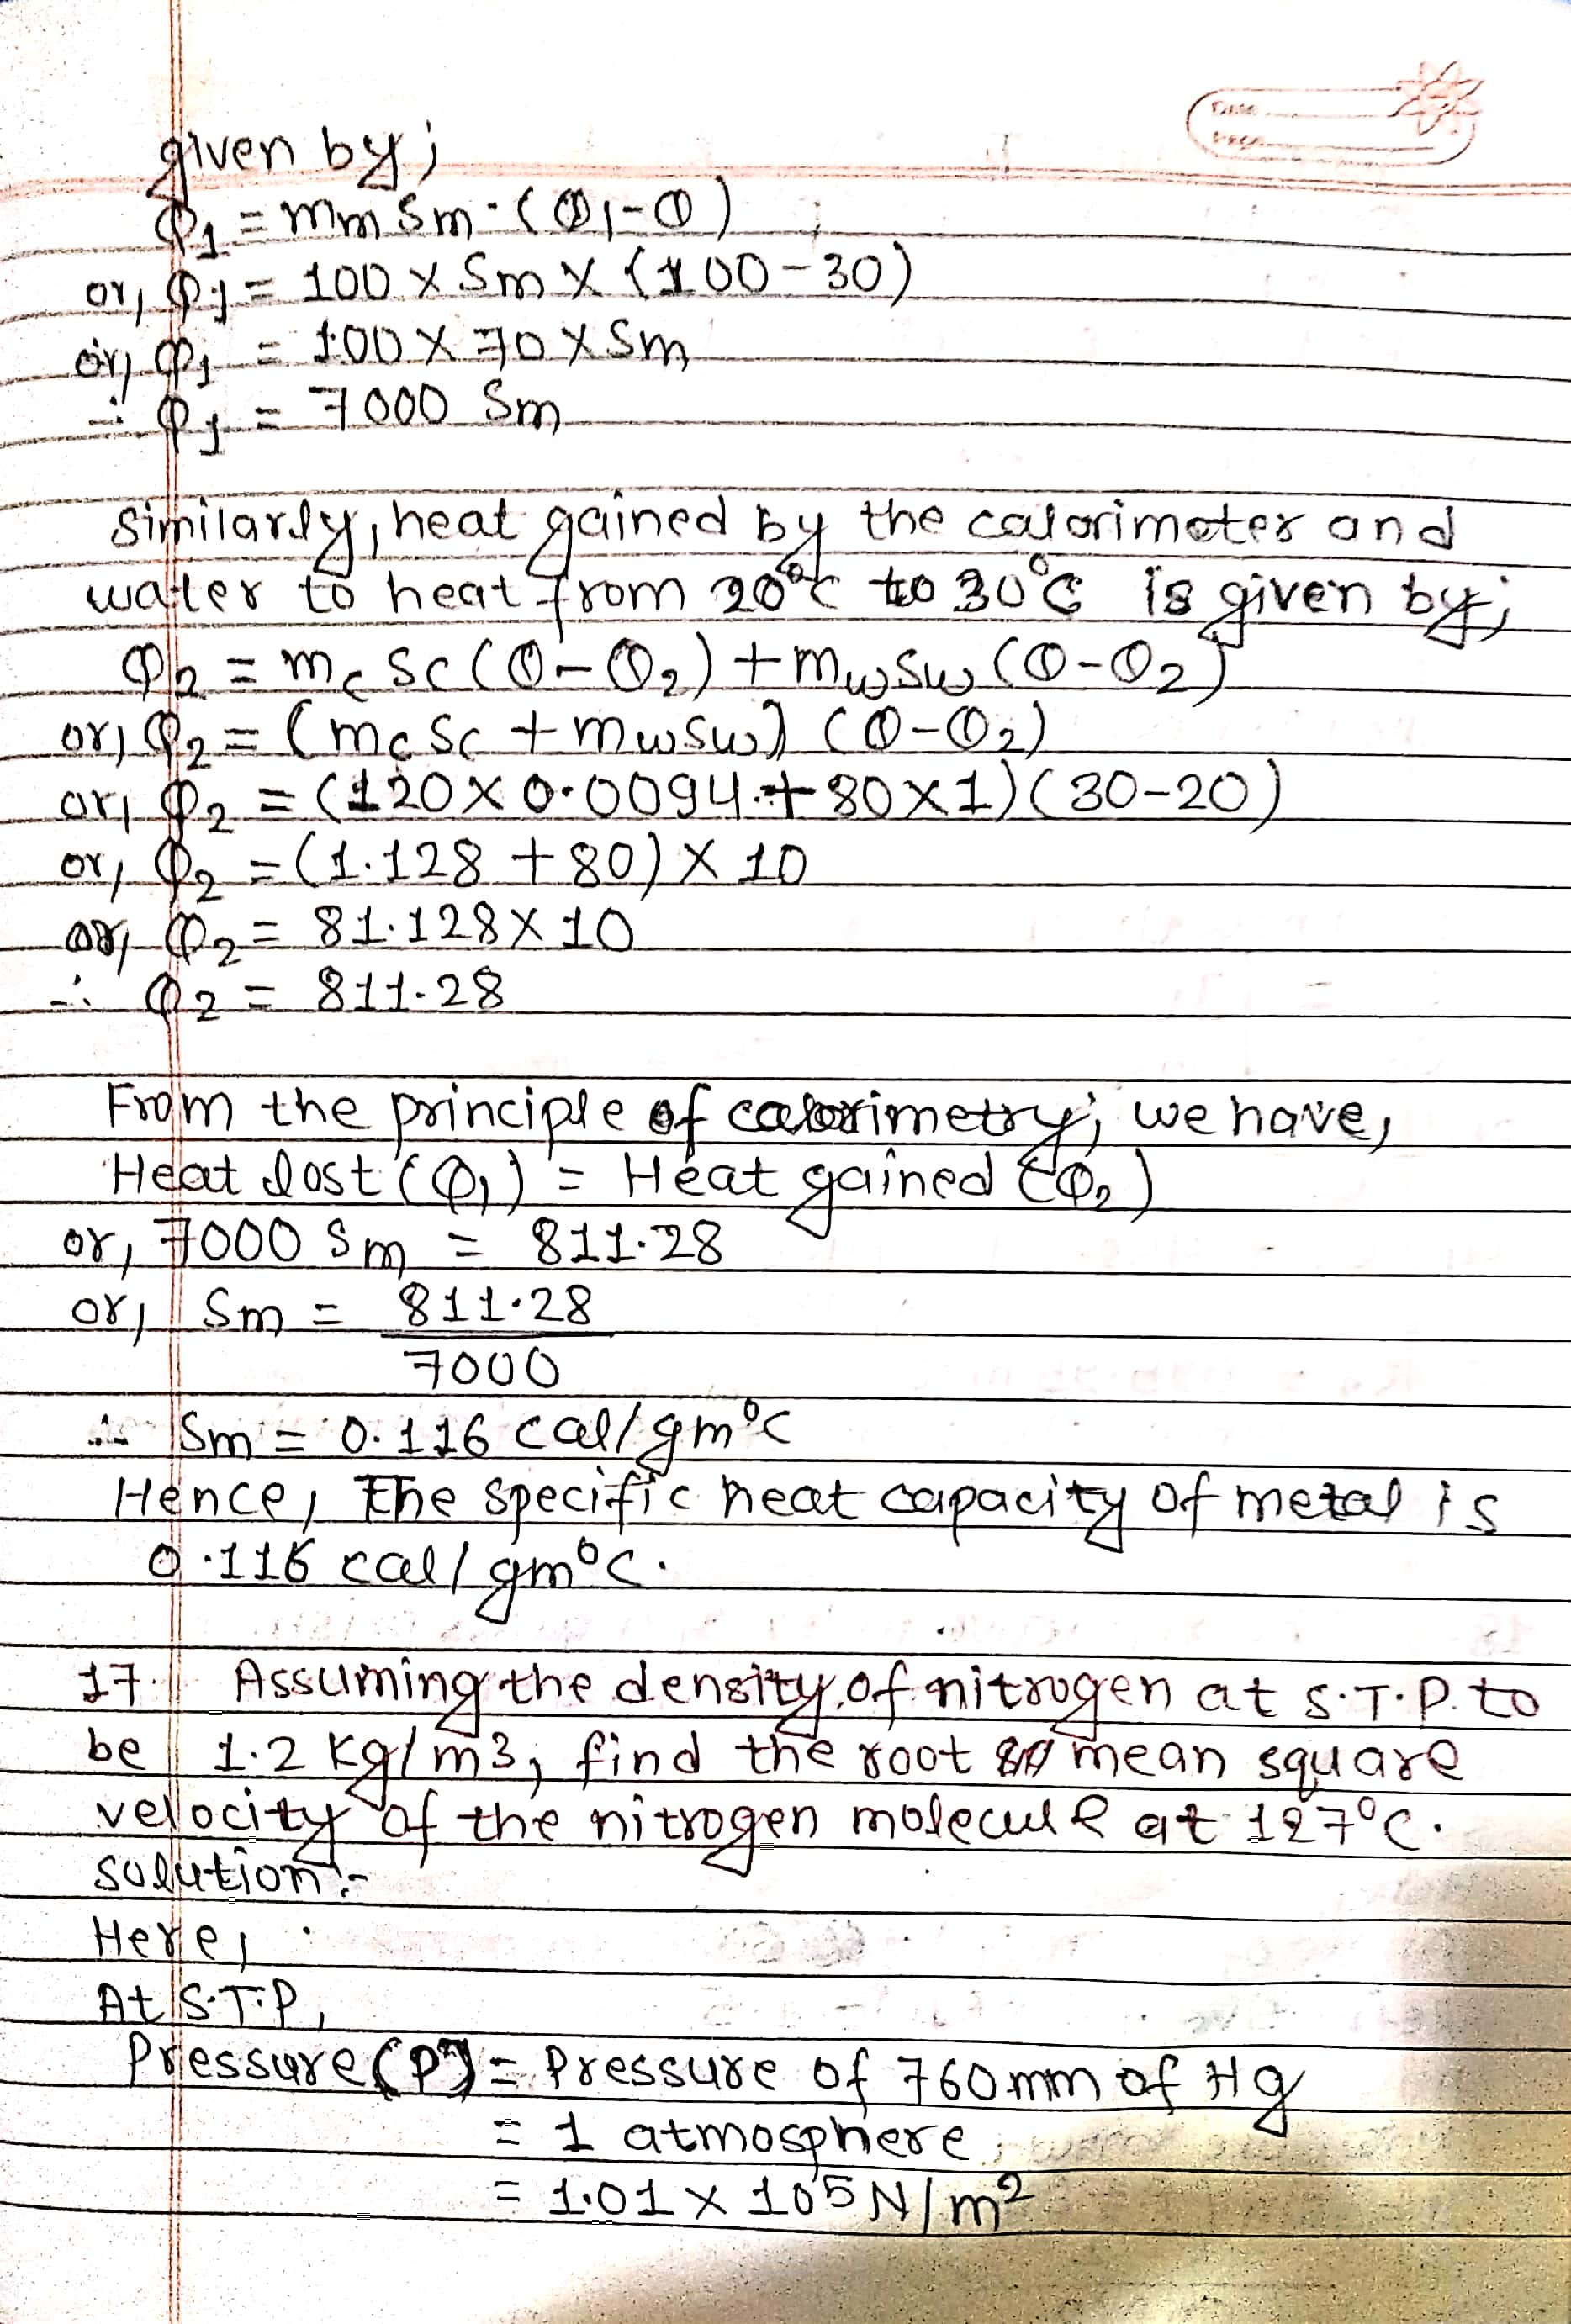 Date
Page
given by;
Q1 = mm sm · (θ1-θ)
or, Q1 = 100 × Sm × (100-30)
or, Q1 = 100 × 70 × Sm
∴ Q1 = 7000 Sm
Similarly, heat gained by the calorimeter and
water to heat from 20°c to 30°c is given by;
Q2 = mc sc (θ-θ2) + mwsw (θ-θ2)
or, Q2 = (mcsc + mwsw) (θ-θ2)
or, Q2 = (120 × 0.0094 + 80 × 1) (30-20)
or, Q2 = (1.128 + 80) × 10
or, Q2 = 81.128 × 10
∴ Q2 = 811.28
From the principle of calorimetry; we have,
Heat lost (Q1) = Heat gained (Q2)
or, 7000 Sm = 811.28
or, Sm = 811.28
7000
∴ Sm = 0.116 cal/gm°c
Hence, the specific heat capacity of metal is
0.116 cal/gm°c.
17. Assuming the density of nitrogen at S.T.P. to
be 1.2 kg/m3, find the root mean square
velocity of the nitrogen molecule at 127°c.
Solution:-
Here,
At S.T.P,
Pressure (P) = Pressure of 760 mm of Hg
= 1 atmosphere
= 1.01 × 10^5 N/m²